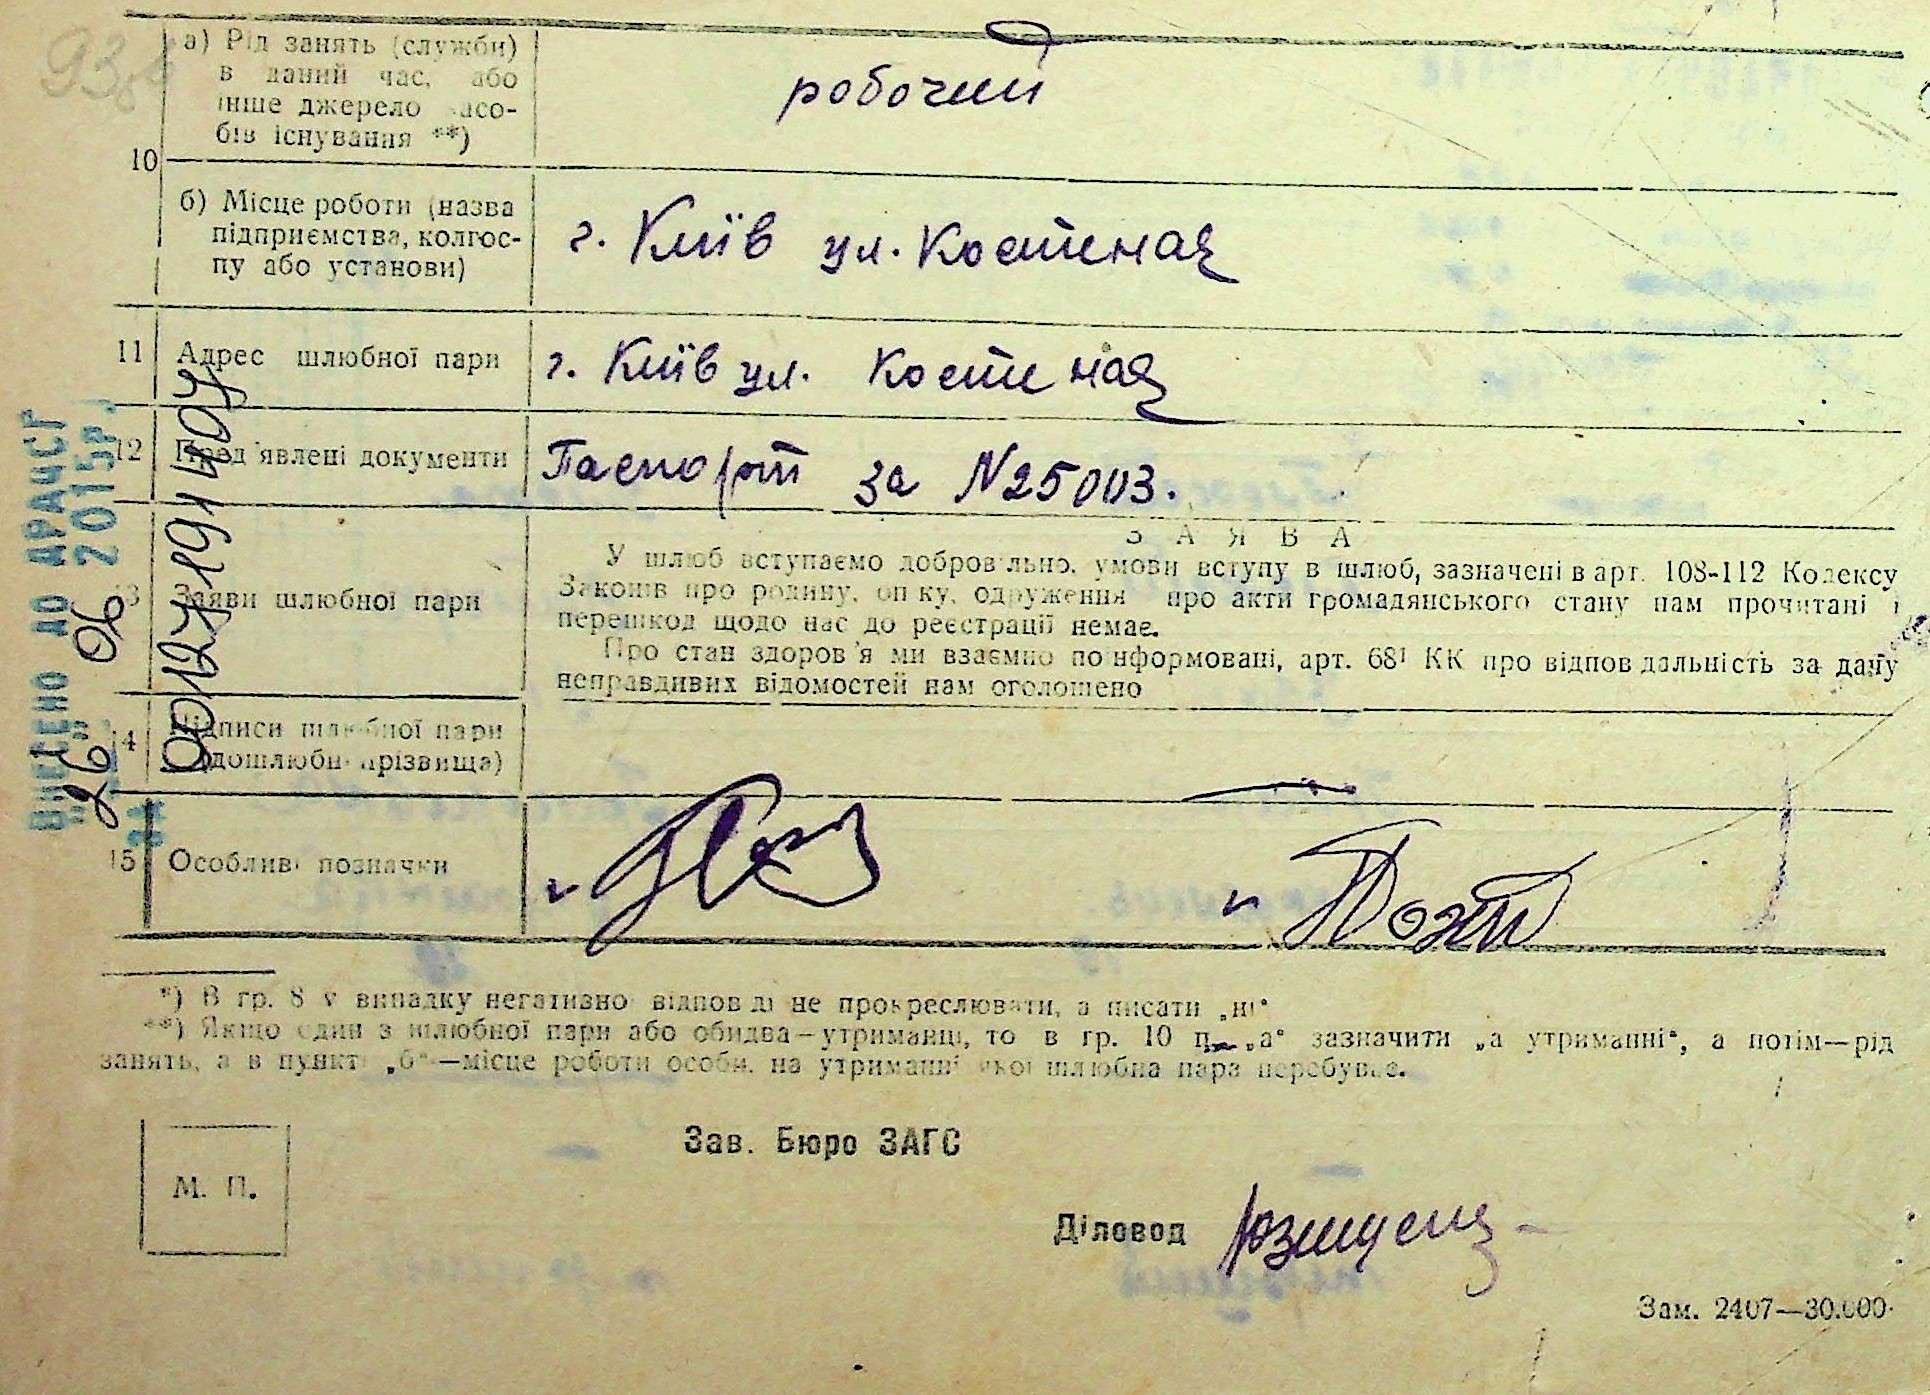 а) Рід занять (служби)
в даний час, або
інше джерело засо-
бів існування **)
робочий
10
б) Місце роботи (назва
підприємства, колгос-
пу або установи)
г. Київ ул. Костеная
11 Адрес шлюбної пари г. Київ ул. Костеная
12 Пред'явлені документи Паспорт за N25003.
ЗАЯВА
13 Заяви шлюбної пари
У шлюб вступаємо добровільно, умови вступу в шлюб, зазначені в арт. 108-112 Кодексу
Законів про родину, опіку, одруження про акти громадянського стану нам прочитані і
перешкод щодо нас до реєстрації немає.
Про стан здоров'я ми взаємно поінформовані, арт. 68¹ КК про відповідальність за дачу
неправдивих відомостей нам оголошено
14 Підписи шлюбної пари
(дошлюбні прізвища)
15 Особливі позначки
ВНЕСЕНО ДО ДРАЦСГ
"26" 06 2015р.
ЗА
*) В гр. 8 у випадку негативної відповіді не прокреслювати, а писати „ні“
**) Якщо один з шлюбної пари або обидва—утриманці, то в гр. 10 п. „а“ зазначити „а утриманні“, а потім—рід
занять, а в пункті „б“—місце роботи особи, на утриманні якої шлюбна пара перебуває.
Зав. Бюро ЗАГС
М. П.
Діловод
Зам. 2407—30.000